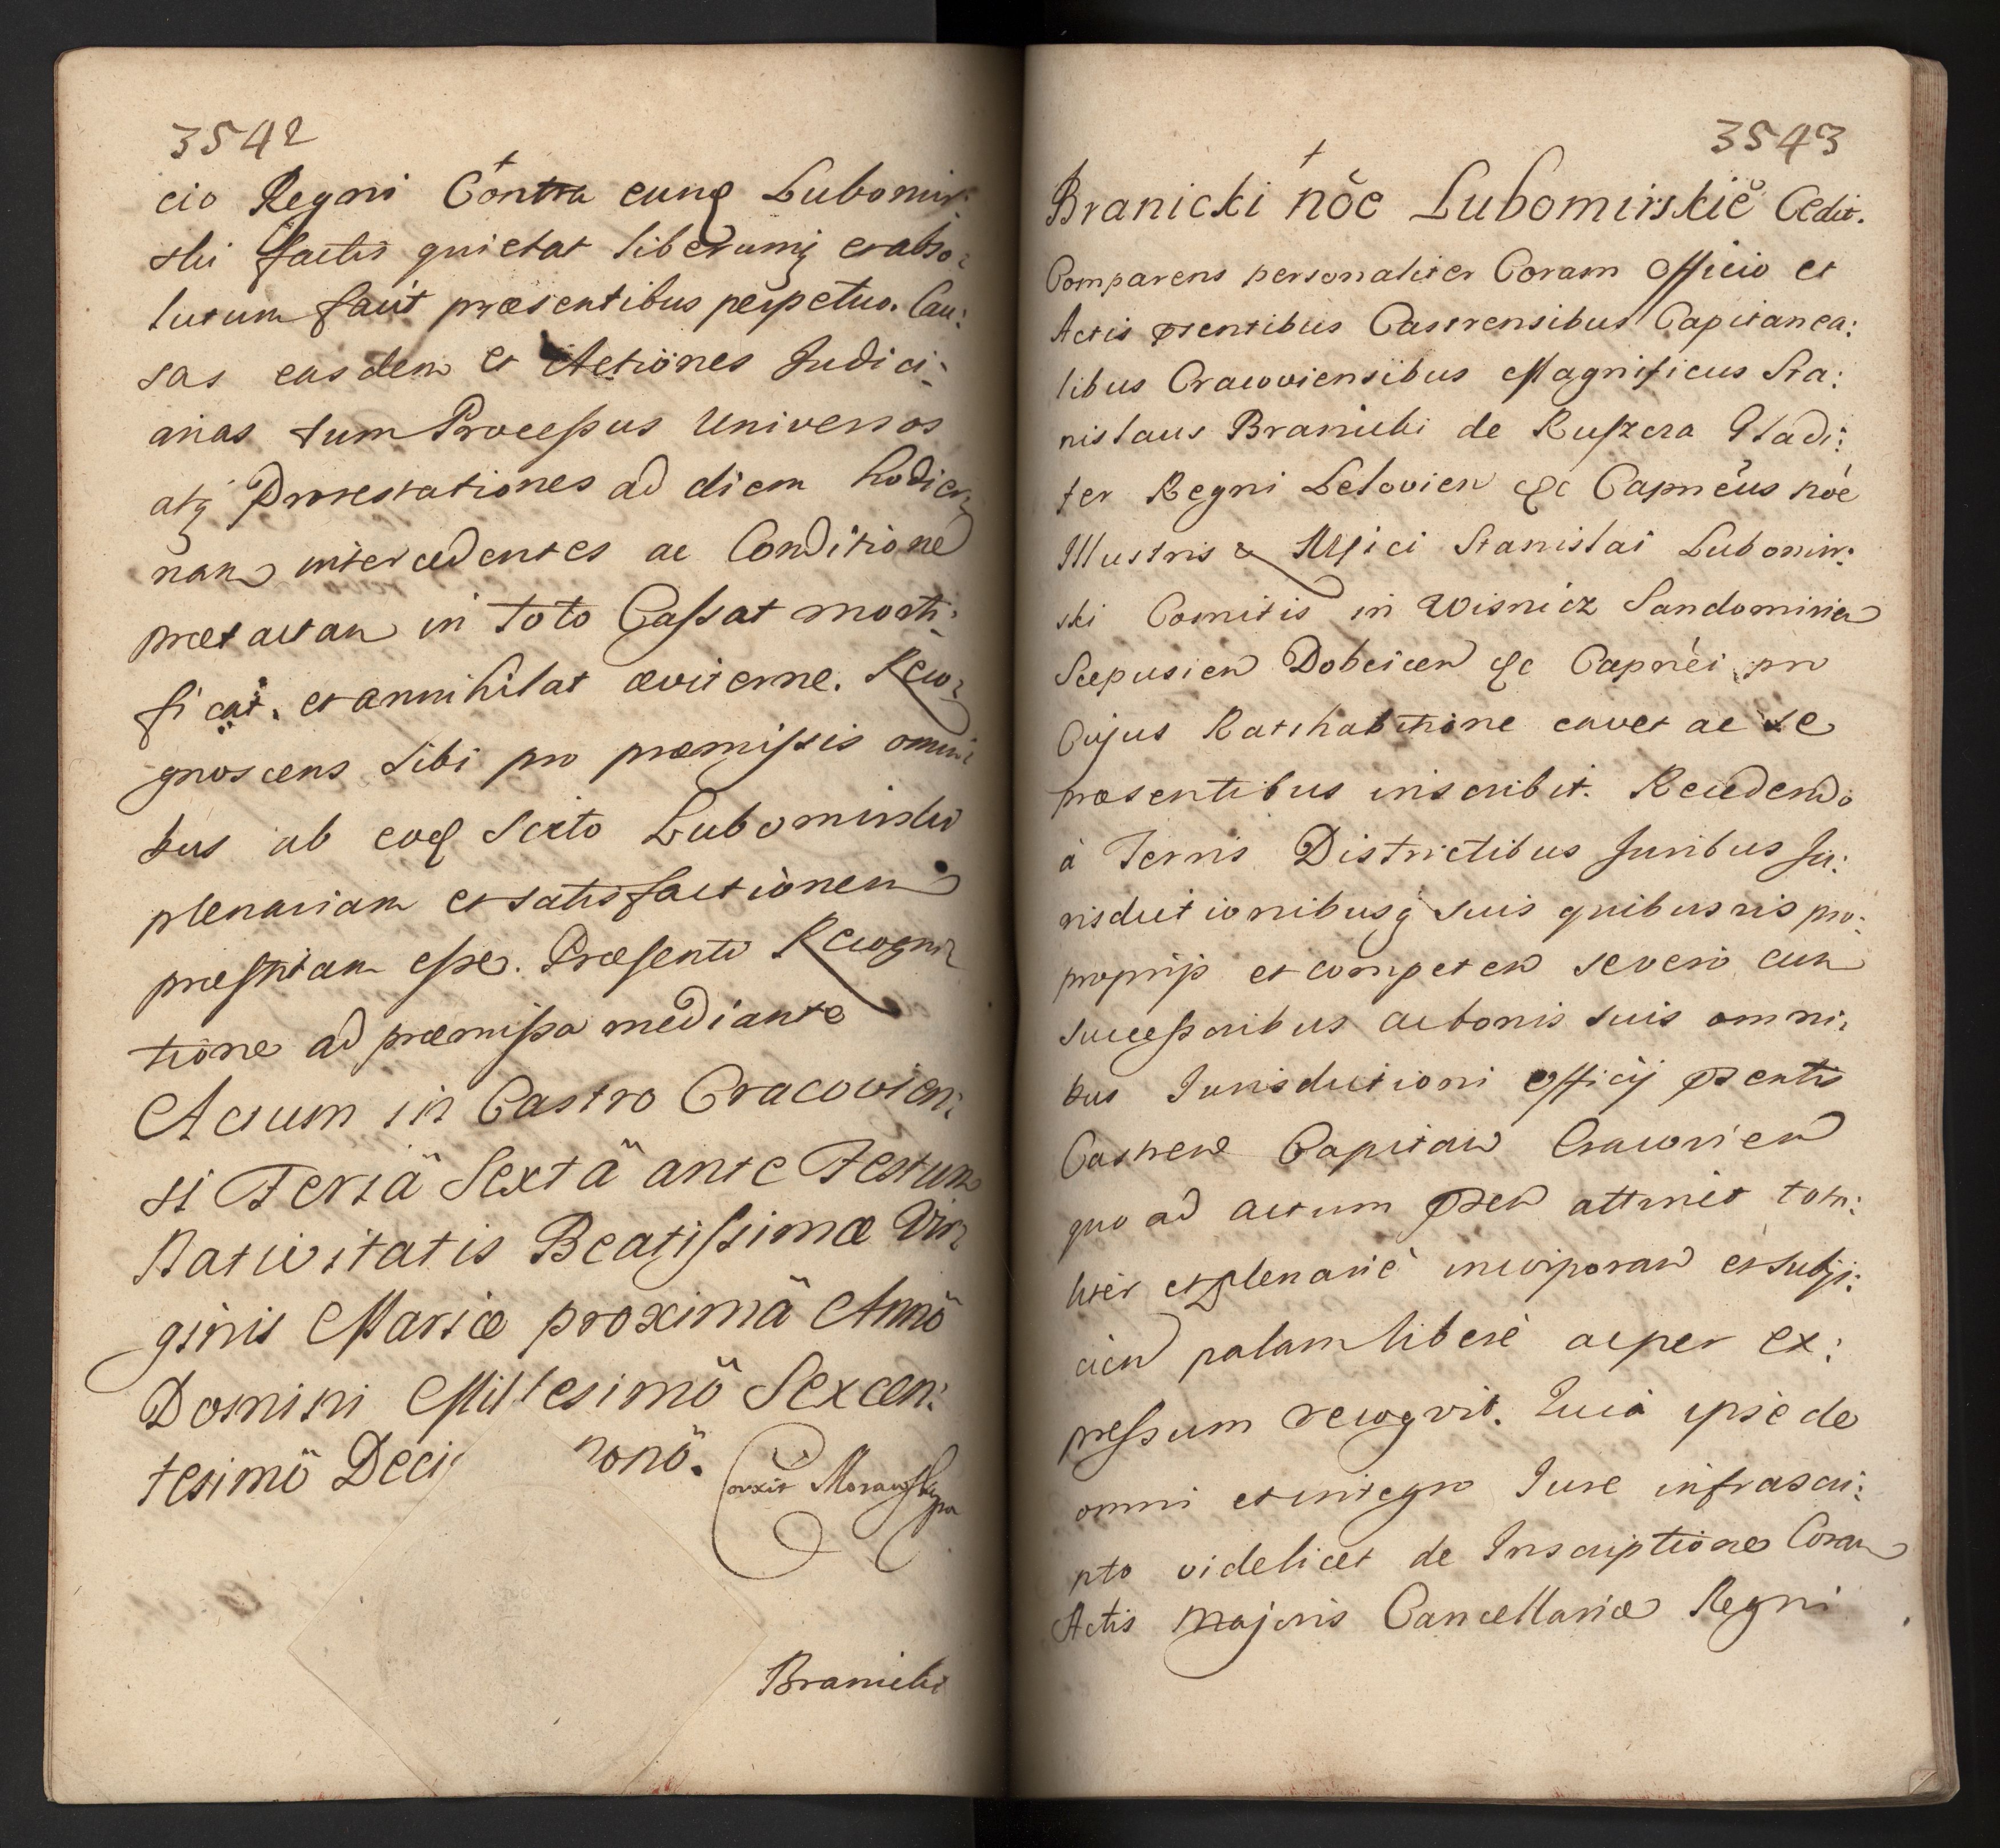 3542
cio Regni Contra eunq Lubomir:
ski factis quietat liberumq et abso:
lutum facit præsentibus perpetuo. Cau:
sas easdem et Actiönes Judici:
arias tum Processus Universos
atq Protestationes ad diem hodier:
nam intercedentes ac Conditione
prætactam in toto Cassat morti:
ficat. et annihilat æviterne. Reco:
gnoscens sibi pro præmissis omni
bus ab eoq Scito Lubomirski
plenariam et satisfactionem
præstitam esse. Præsenti Recogni:
tione ad præmissa mediante
Actum in Castro Cracovien:
si Feriä Sextä ante Festum
Nativitatis Beatissimæ Vir:
ginis Mariæ proximä Annö
Domini Millesimö Sexcen:
tesimö Deci nonö.
Branicki
3543
Branicki nöe Lubomirskie Cedit.
Comparens personaliter Coram Officio et
Actis prsentibus Castrensibus Capitanea:
libus Cracoviensibus Magnificus Sta:
nislaus Branicki de Ruszcza Gladi:
fer Regni Lelovien &c Capneus nöe
Illustris & Mfici Stanislai Lubomir:
ski Comitis in Wisnicz Sandomirien
Scepusien Dobcicen &c Capnei pro
Cujus Ratihabitione cavet ac se
præsentibus inscribit. Recedendo
à Terris Districtibus Juribus Ju:
risdictionibusq suis quibusvis pro:
proprijs et competen severo cum
successoribus ac bonis suis omni:
bus Jurisdictioni officij prsentis
Castren Capitan Cracovien
quo ad actum prsen attinet tota:
liter et plenarie incorporan et subji:
cien palam libere ac per ex:
pressum recogvit. Quia ipse de
omni et integro Jure infrascri:
pto videlicet de Inscriptione Coram
Actis Majoris Cancellariæ Regni